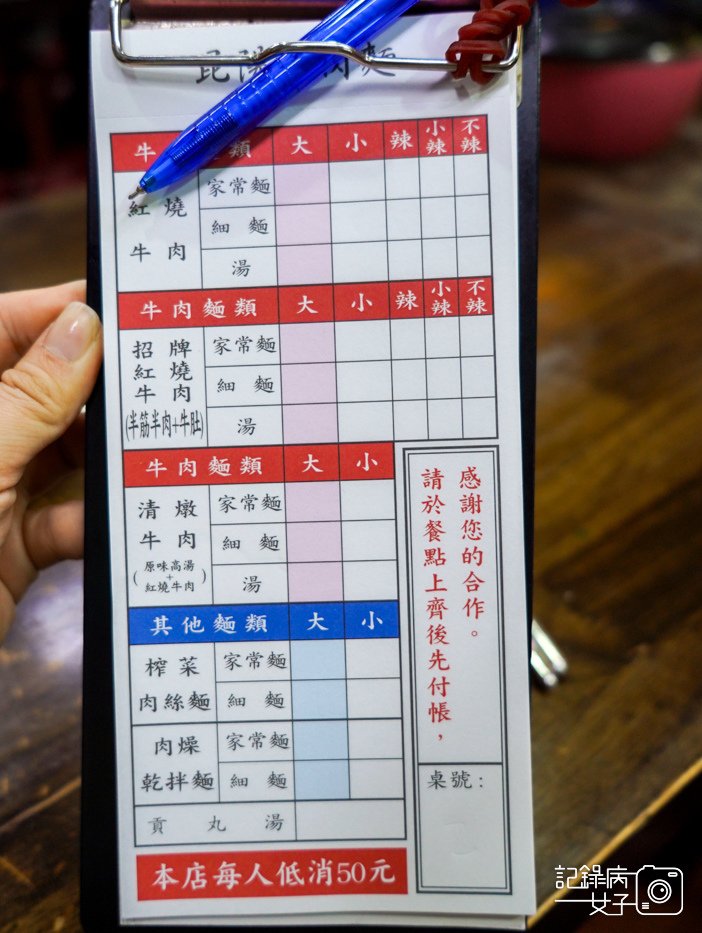 麵
牛 類 大 小 辣 小辣 不辣
紅燒牛肉
家常麵
細麵
湯
牛肉麵類 大 小 辣 小辣 不辣
招牌紅燒牛肉
(半筋半肉+牛肚)
家常麵
細麵
湯
牛肉麵類 大 小
清燉牛肉
(原味高湯+紅燒牛肉)
家常麵
細麵
湯
其他麵類 大 小
榨菜肉絲麵
家常麵
細麵
肉燥乾拌麵
家常麵
細麵
貢丸湯
感謝您的合作。
請於餐點上齊後先付帳,
桌號:
本店每人低消50元
記錄病女子